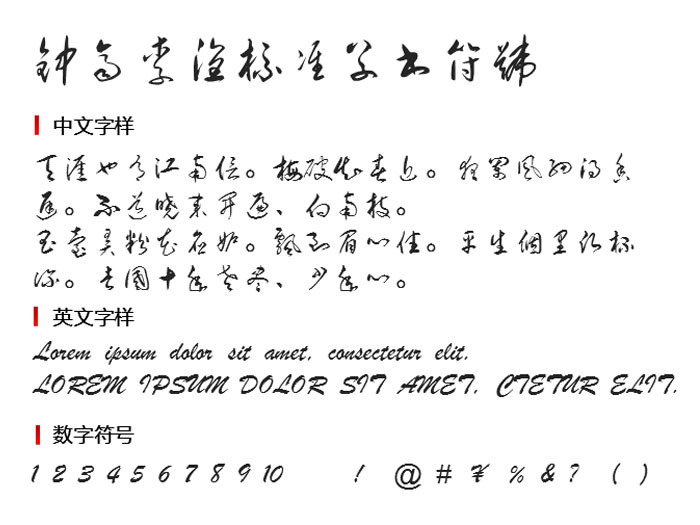 钟齐李洤标准草书符號
中文字样
天涯也有江南信。梅破知春近。夜阑风细得香
迟。不道晓来开遍、向南枝。
玉台弄粉花应妒。飘到眉心住。平生個里愿杯
深。去國十年老尽、少年心。
英文字样
Lorem ipsum dolor sit amet, consectetur elit.
LOREM IPSUM DOLOR SIT AMET, CTETUR ELIT.
数字符号
1 2 3 4 5 6 7 8 9 10 ! @ # ¥ % & ? ( )